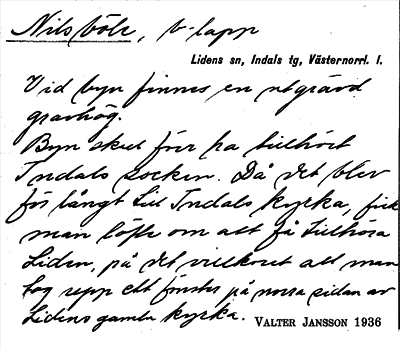 Nilsböle, b-lapp
Lidens sn, Indals tg, Västernorrl. l.
Vid byn finnes en utgrävd
gravhög.
Byn skul förr ha tillhört
Indals socken. Då det blev
för långt till Indals kyrka, fick
man löfte om att få tillhöra
Liden, på det villkoret att man
tog upp ett fönster på norra sidan av
Lidens gamla kyrka. VALTER JANSSON 1936